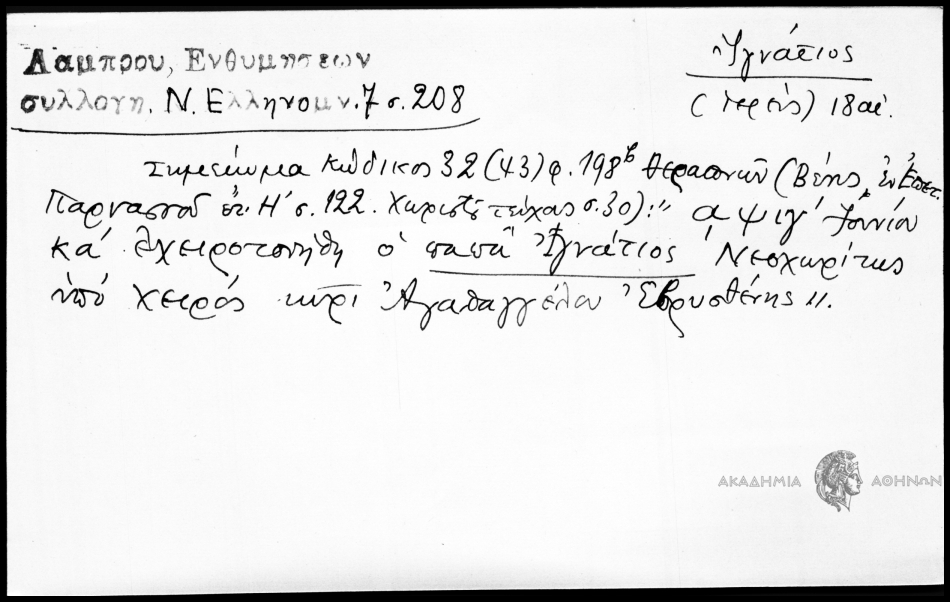 Λάμπρου, Ενθυμήσεων
συλλογη, Ν. Ελληνομν. 7 σ. 208
Ἰγνάτιος
(ἱερεύς) 18 αἰ.
Σημείωμα Κώδικος 32 (43) φ. 198β Θεραπνῶν (Βέης, ἐν Ἐπετ.
Παρνασσοῦ ἔτ. Η' σ. 122. Χωριστὸ τεῦχος σ. 30): " αψιγ' Ἰουνίου
κά ἐχειροτονήθη ὁ παπᾶ Ἰγνάτιος Νεοχωρίτης
ὑπό χειρός κυρι Ἀγαθαγγέλου Ἐβρυσθένης ".
ΑΚΑΔΗΜΙΑ ΑΘΗΝΩΝ